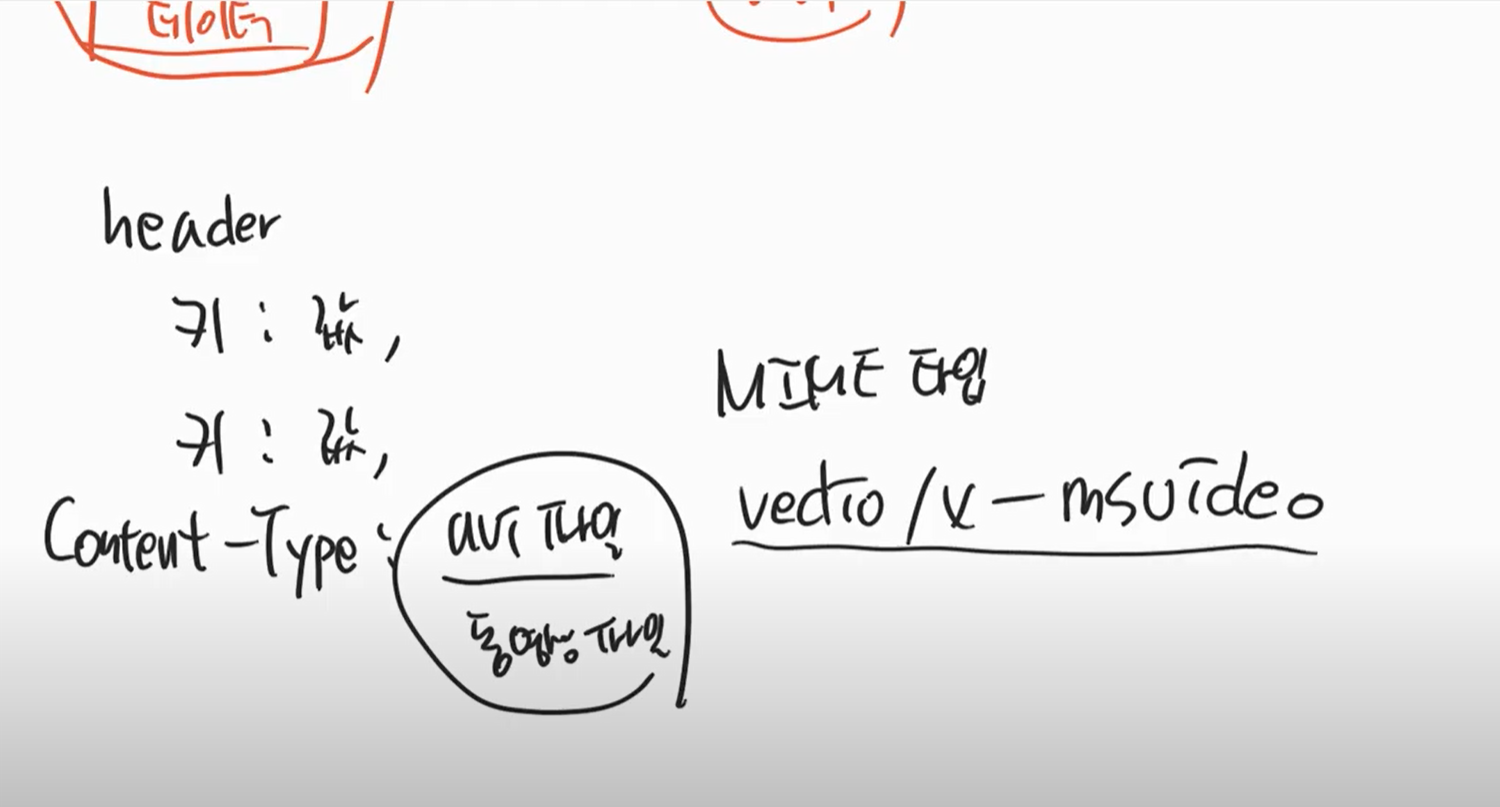 데이터
header
키 : 값,
키 : 값,
Content-Type :
avi 파일
동영상 파일
MIME 타입
vedio/x-msvideo